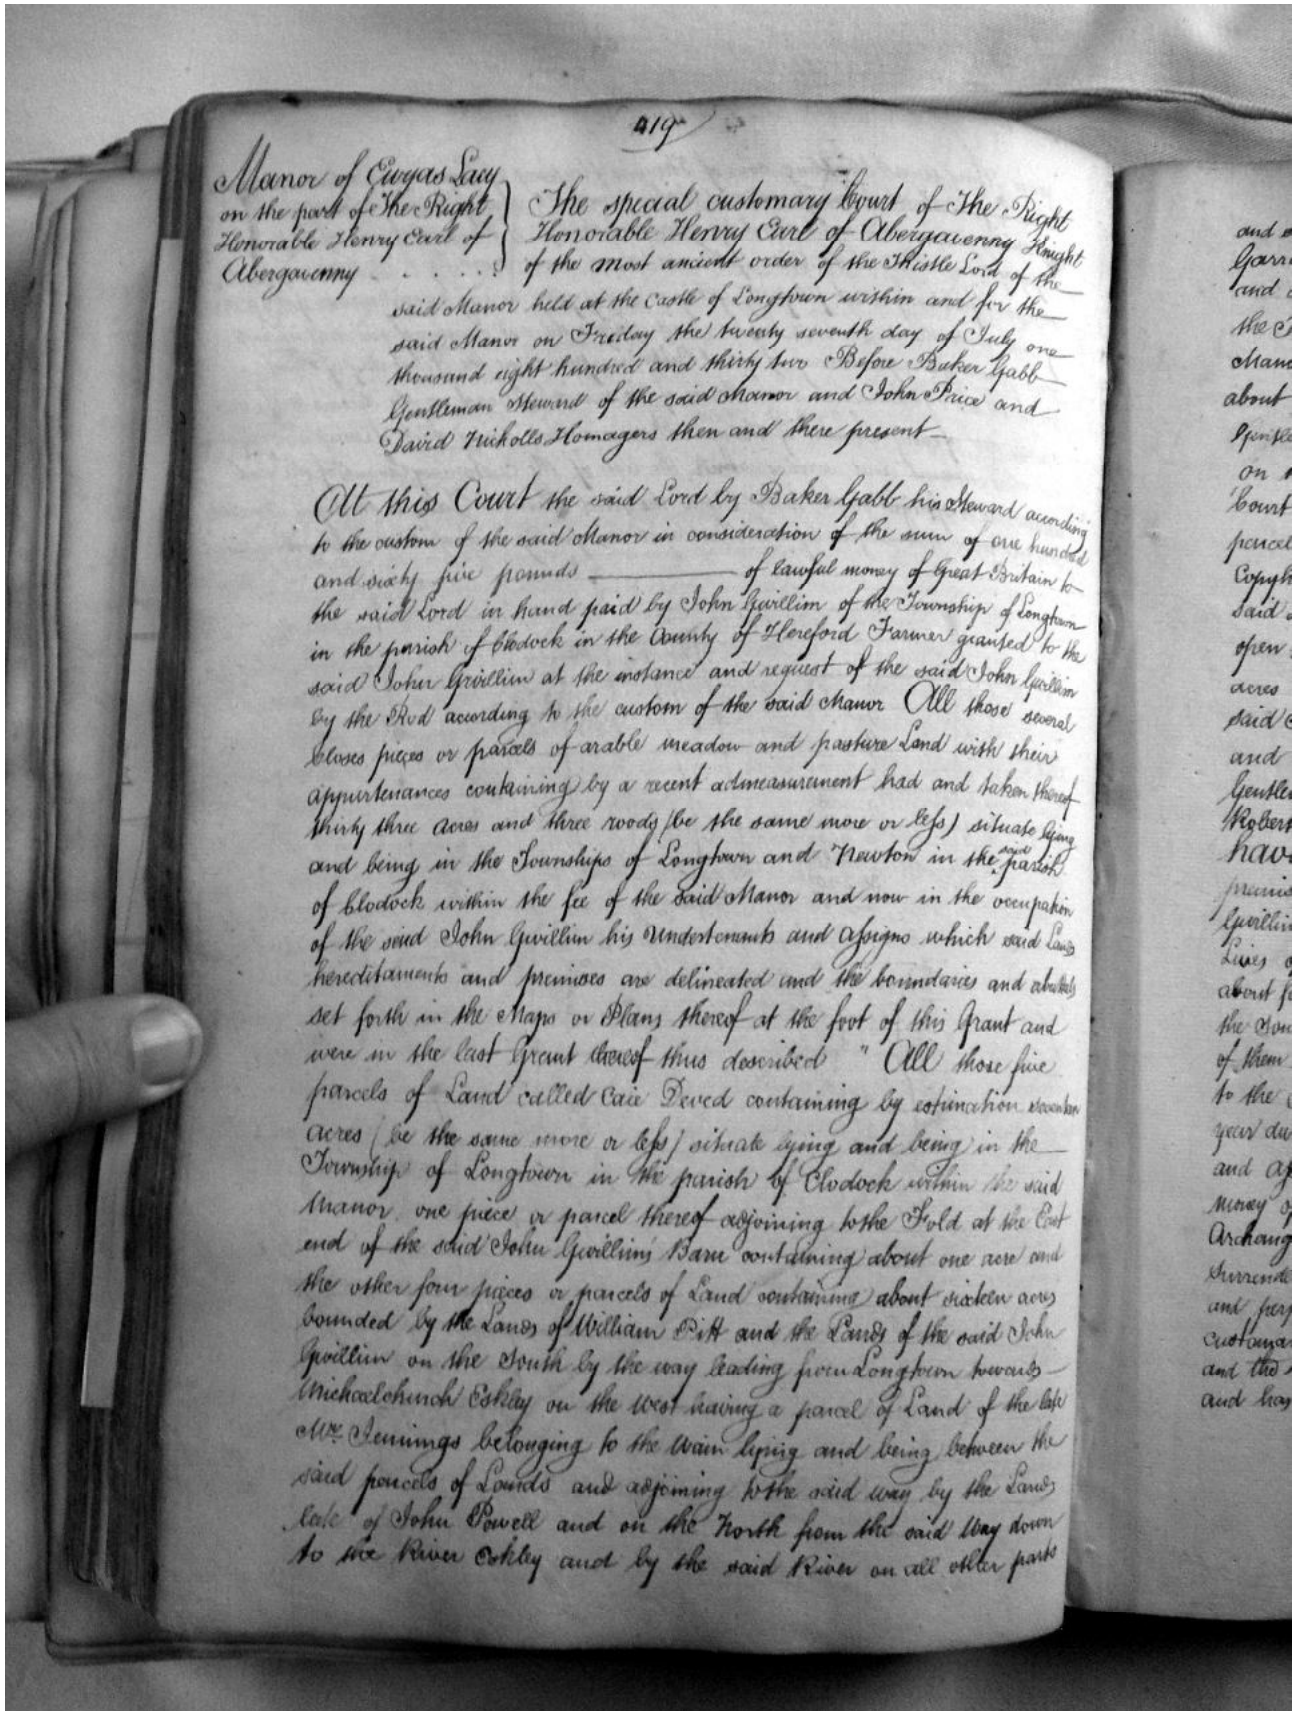 419
Manor of Ewyas Lacy
on the part of The Right
Honorable Henry Earl of
Abergavenny . . . . .
The special customary Court of The Right
Honorable Henry Earl of Abergavenny Knight
of the most ancient order of the Thistle Lord of the
said Manor held at the Castle of Longtown within and for the
said Manor on Friday the twenty seventh day of July one
thousand eight hundred and thirty two Before Baker Gabb
Gentleman Steward of the said Manor and John Price and
David Nicholls Homagers then and there present
At this Court the said Lord by Baker Gabb his Steward according
to the custom of the said Manor in consideration of the sum of one hundred
and sixty five pounds of lawful money of Great Britain to
the said Lord in hand paid by John Gwillim of the Township of Longtown
in the parish of Clodock in the County of Hereford Farmer granted to the
said John Gwillim at the instance and request of the said John Gwillim
by the Rod according to the custom of the said Manor All those several
Closes pieces or parcels of arable meadow and pasture Land with their
appurtenances containing by a recent admeasurement had and taken thereof
thirty three acres and three roods (be the same more or less) situate lying
and being in the Townships of Longtown and Newton in the said parish
of Clodock within the fee of the said Manor and now in the occupation
of the said John Gwillim his undertenants and assigns which said Lands
hereditaments and premises are delineated and the boundaries and abuttals
set forth in the Maps or Plans thereof at the foot of this Grant and
were in the last Grant thereof thus described " All those five
parcels of Land called Caie Deved containing by estimation seventeen
acres (be the same more or less) situate lying and being in the
Township of Longtown in the parish of Clodock within the said
Manor one piece or parcel thereof adjoining to the Fold at the East
end of the said John Gwillim's Barn containing about one acre and
the other four pieces or parcels of Land containing about sixteen acres
bounded by the Lands of William Pitt and the Lands of the said John
Gwillim on the South by the way leading from Longtown towards
Michaelchurch Eskley on the West having a parcel of Land of the late
Mr. Jennings belonging to the Wain lying and being between the
said parcels of Lands and adjoining to the said way by the Lands
late of John Powell and on the North from the said Way down
to the River Eskley and by the said River on all other parts
and
and
the
Manor
about
on
Court
parcel
Copyh
said
open
acres
said
and
Gentle
Robert
have
premis
Gwillim
Lives
about
the
of them
to the
year
and
money of
Archang
Surrende
and
customar
and the
and has